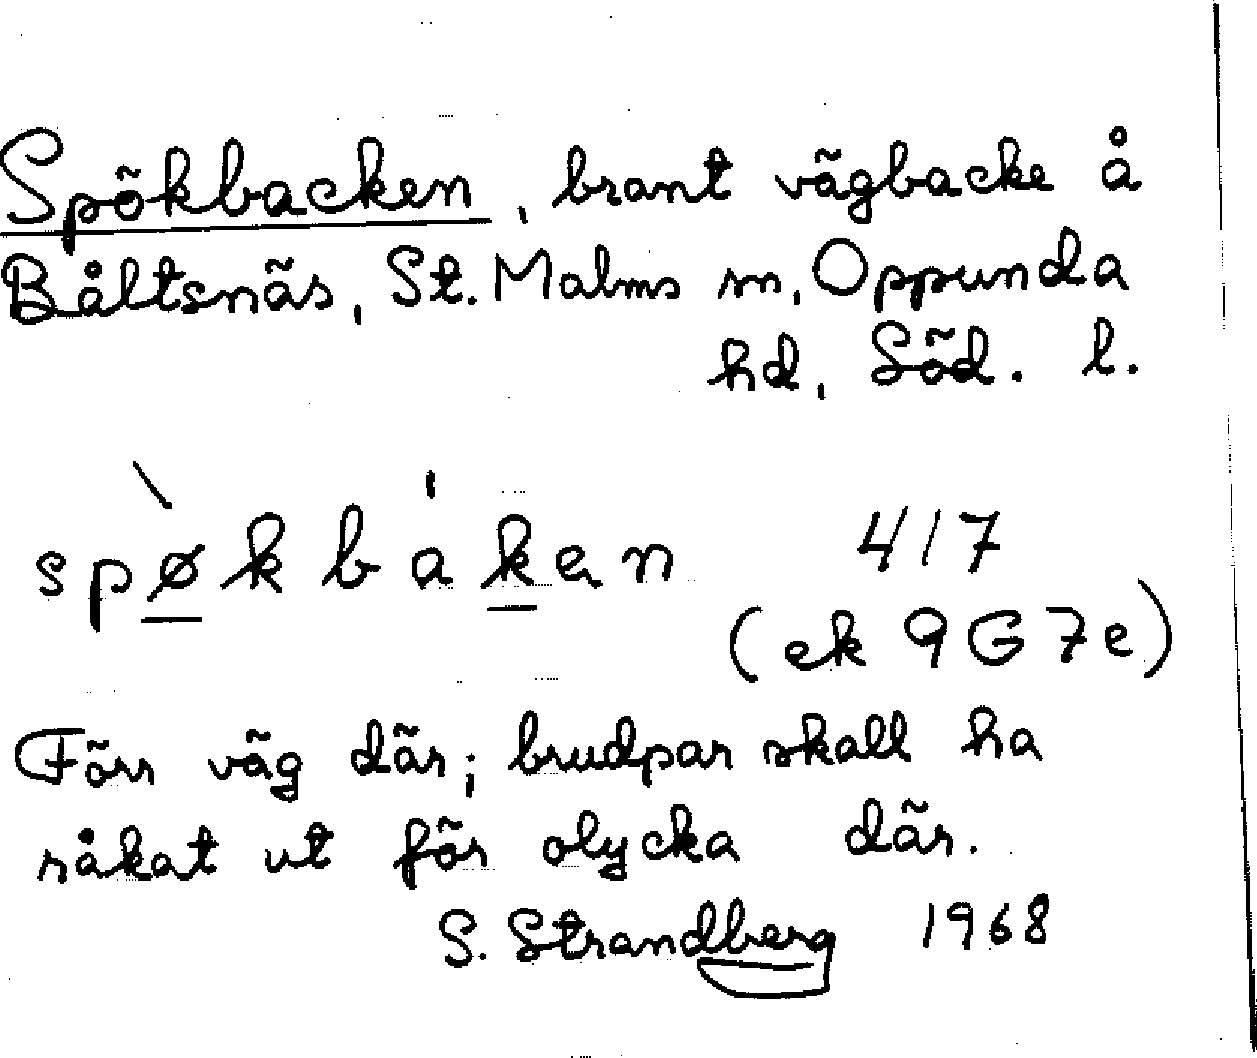 Spökbacken, brant vägbacke å
Båltsnäs, St. Malms sn, Oppunda
hd, Söd. l.
spø̀kbákan 417
(ek 9G7e)
Förr väg där; brudpar skall ha
råkat ut för olycka där.
S. Strandberg 1968